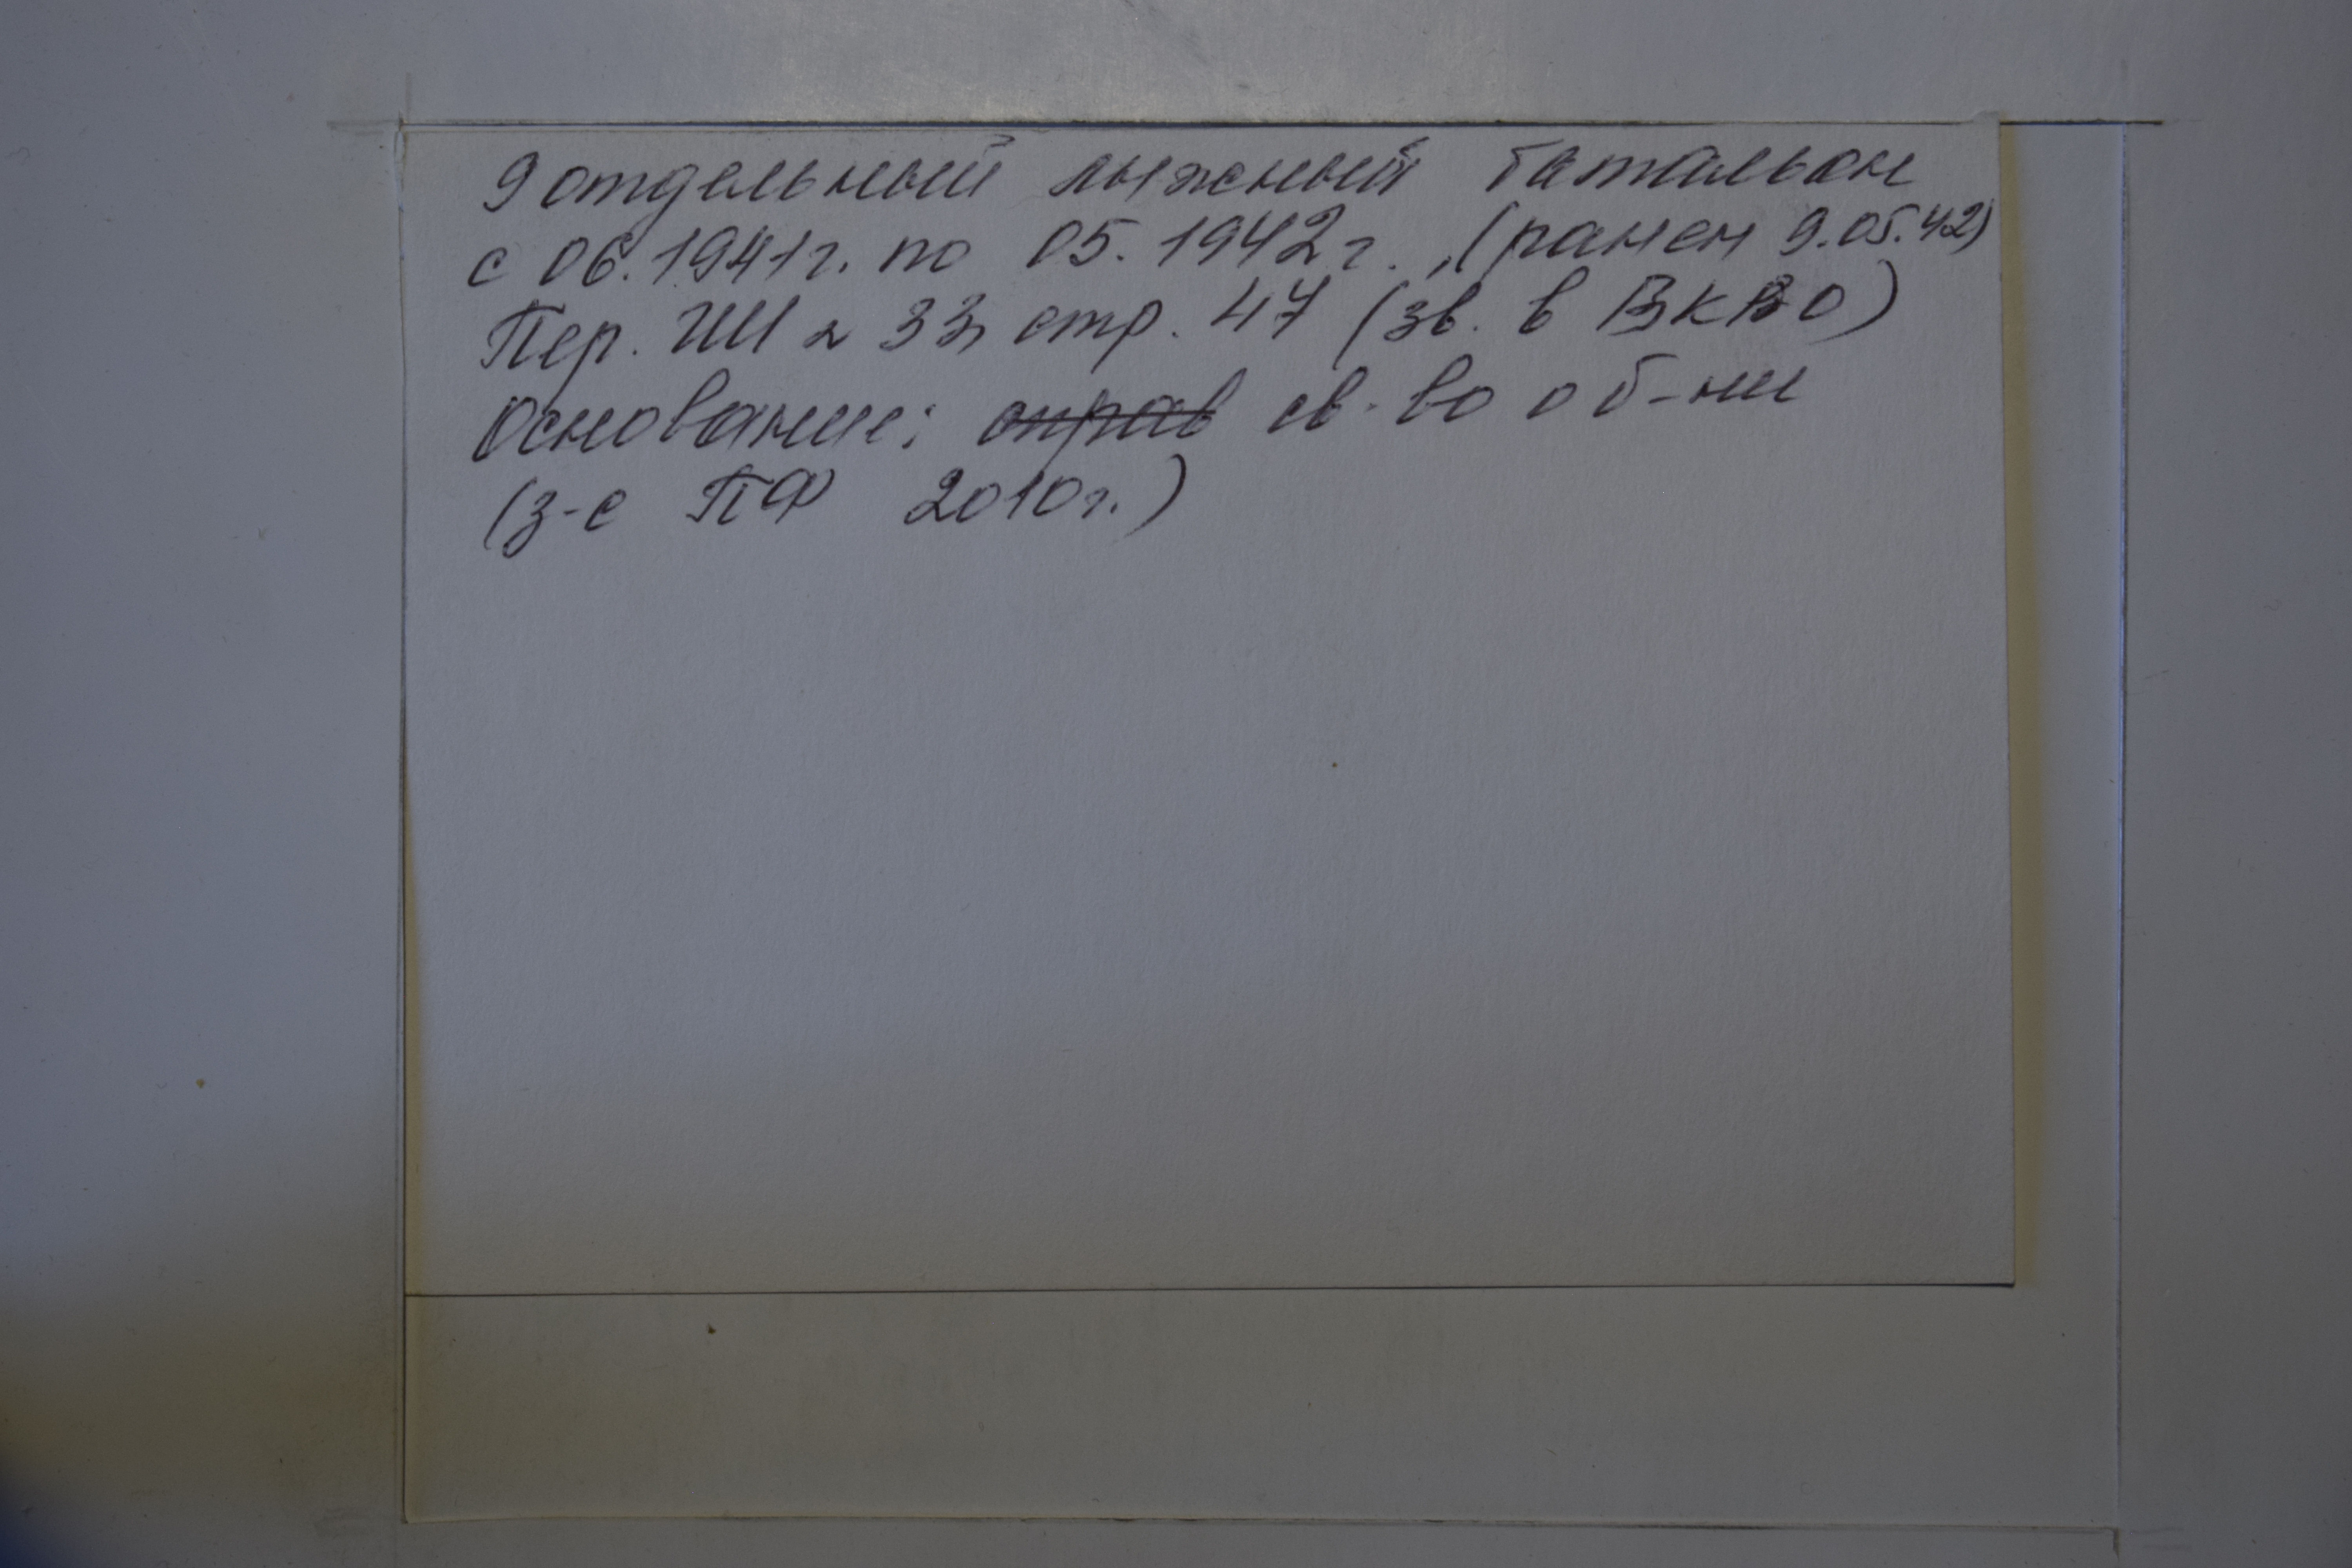 9 отдельный лыжный батальон
с 06.1941г. по 05.1942г., (ранен 9.05.42)
Пер. ИИ 33, стр. 47 (зв. в ВКВО)
Основание: справ св-во о б-ни
(з-с ПФ 2010г.)